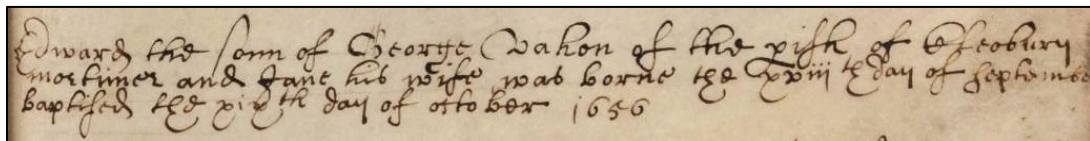 Edward the sonn of George Vahon of the pish of Cleobury
mortimer and Jane his wife was borne the xxiii th day of Septemb
baptised the xix th day of october 1656